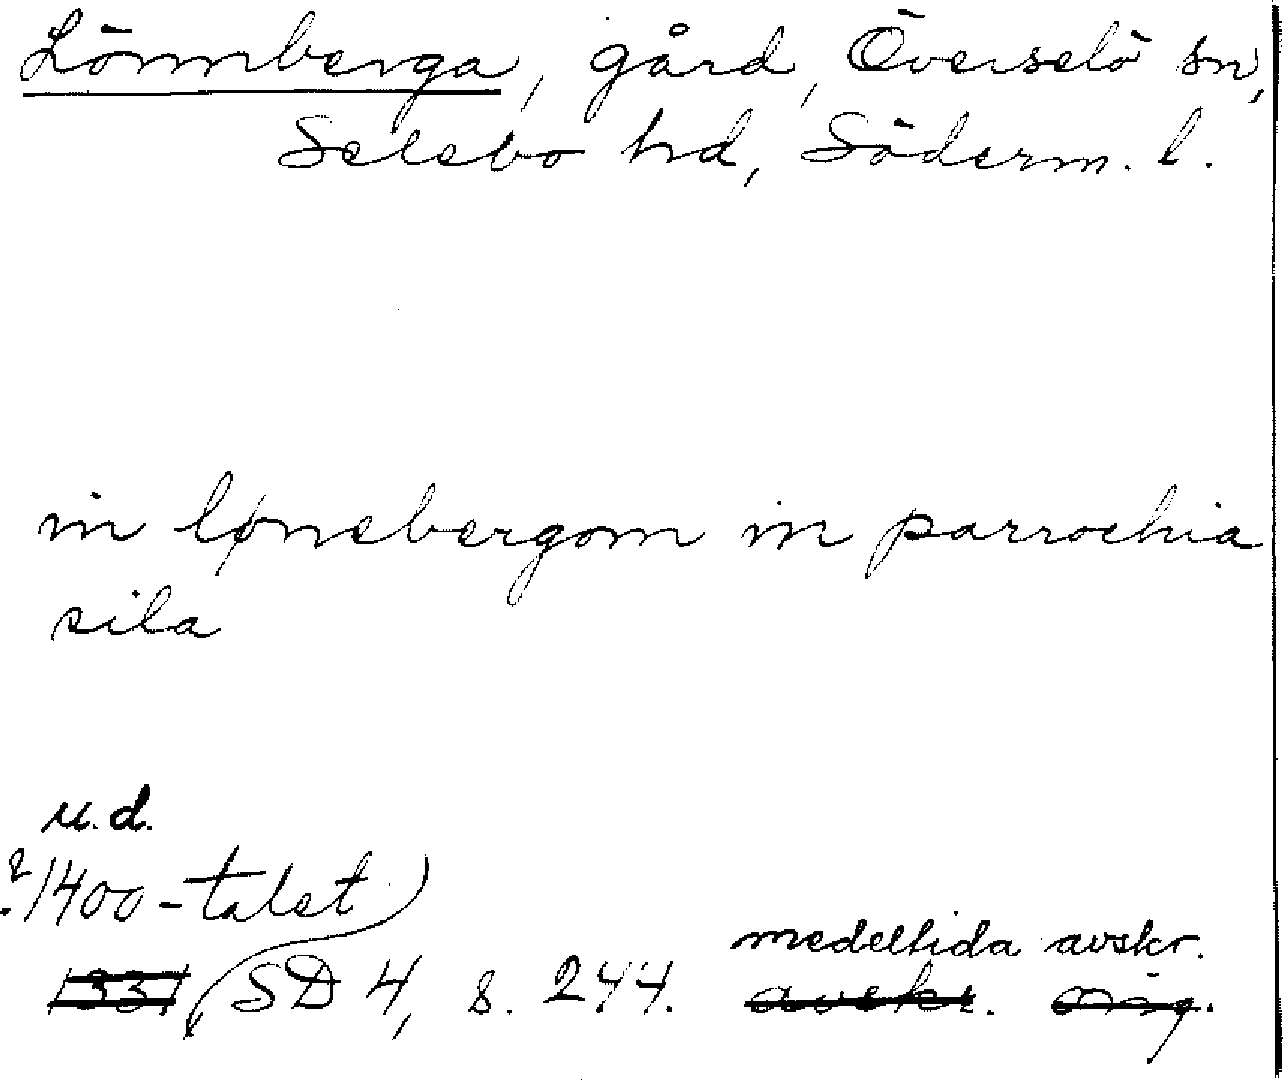 Lönnberga, gård, Överselö sn,
Selebo hd, Söderm. l.
in lønebergom in parrochia
sila
u.d.
?1400-talet
1331 SD 4, s. 244.
medeltida avskr.
avskr.